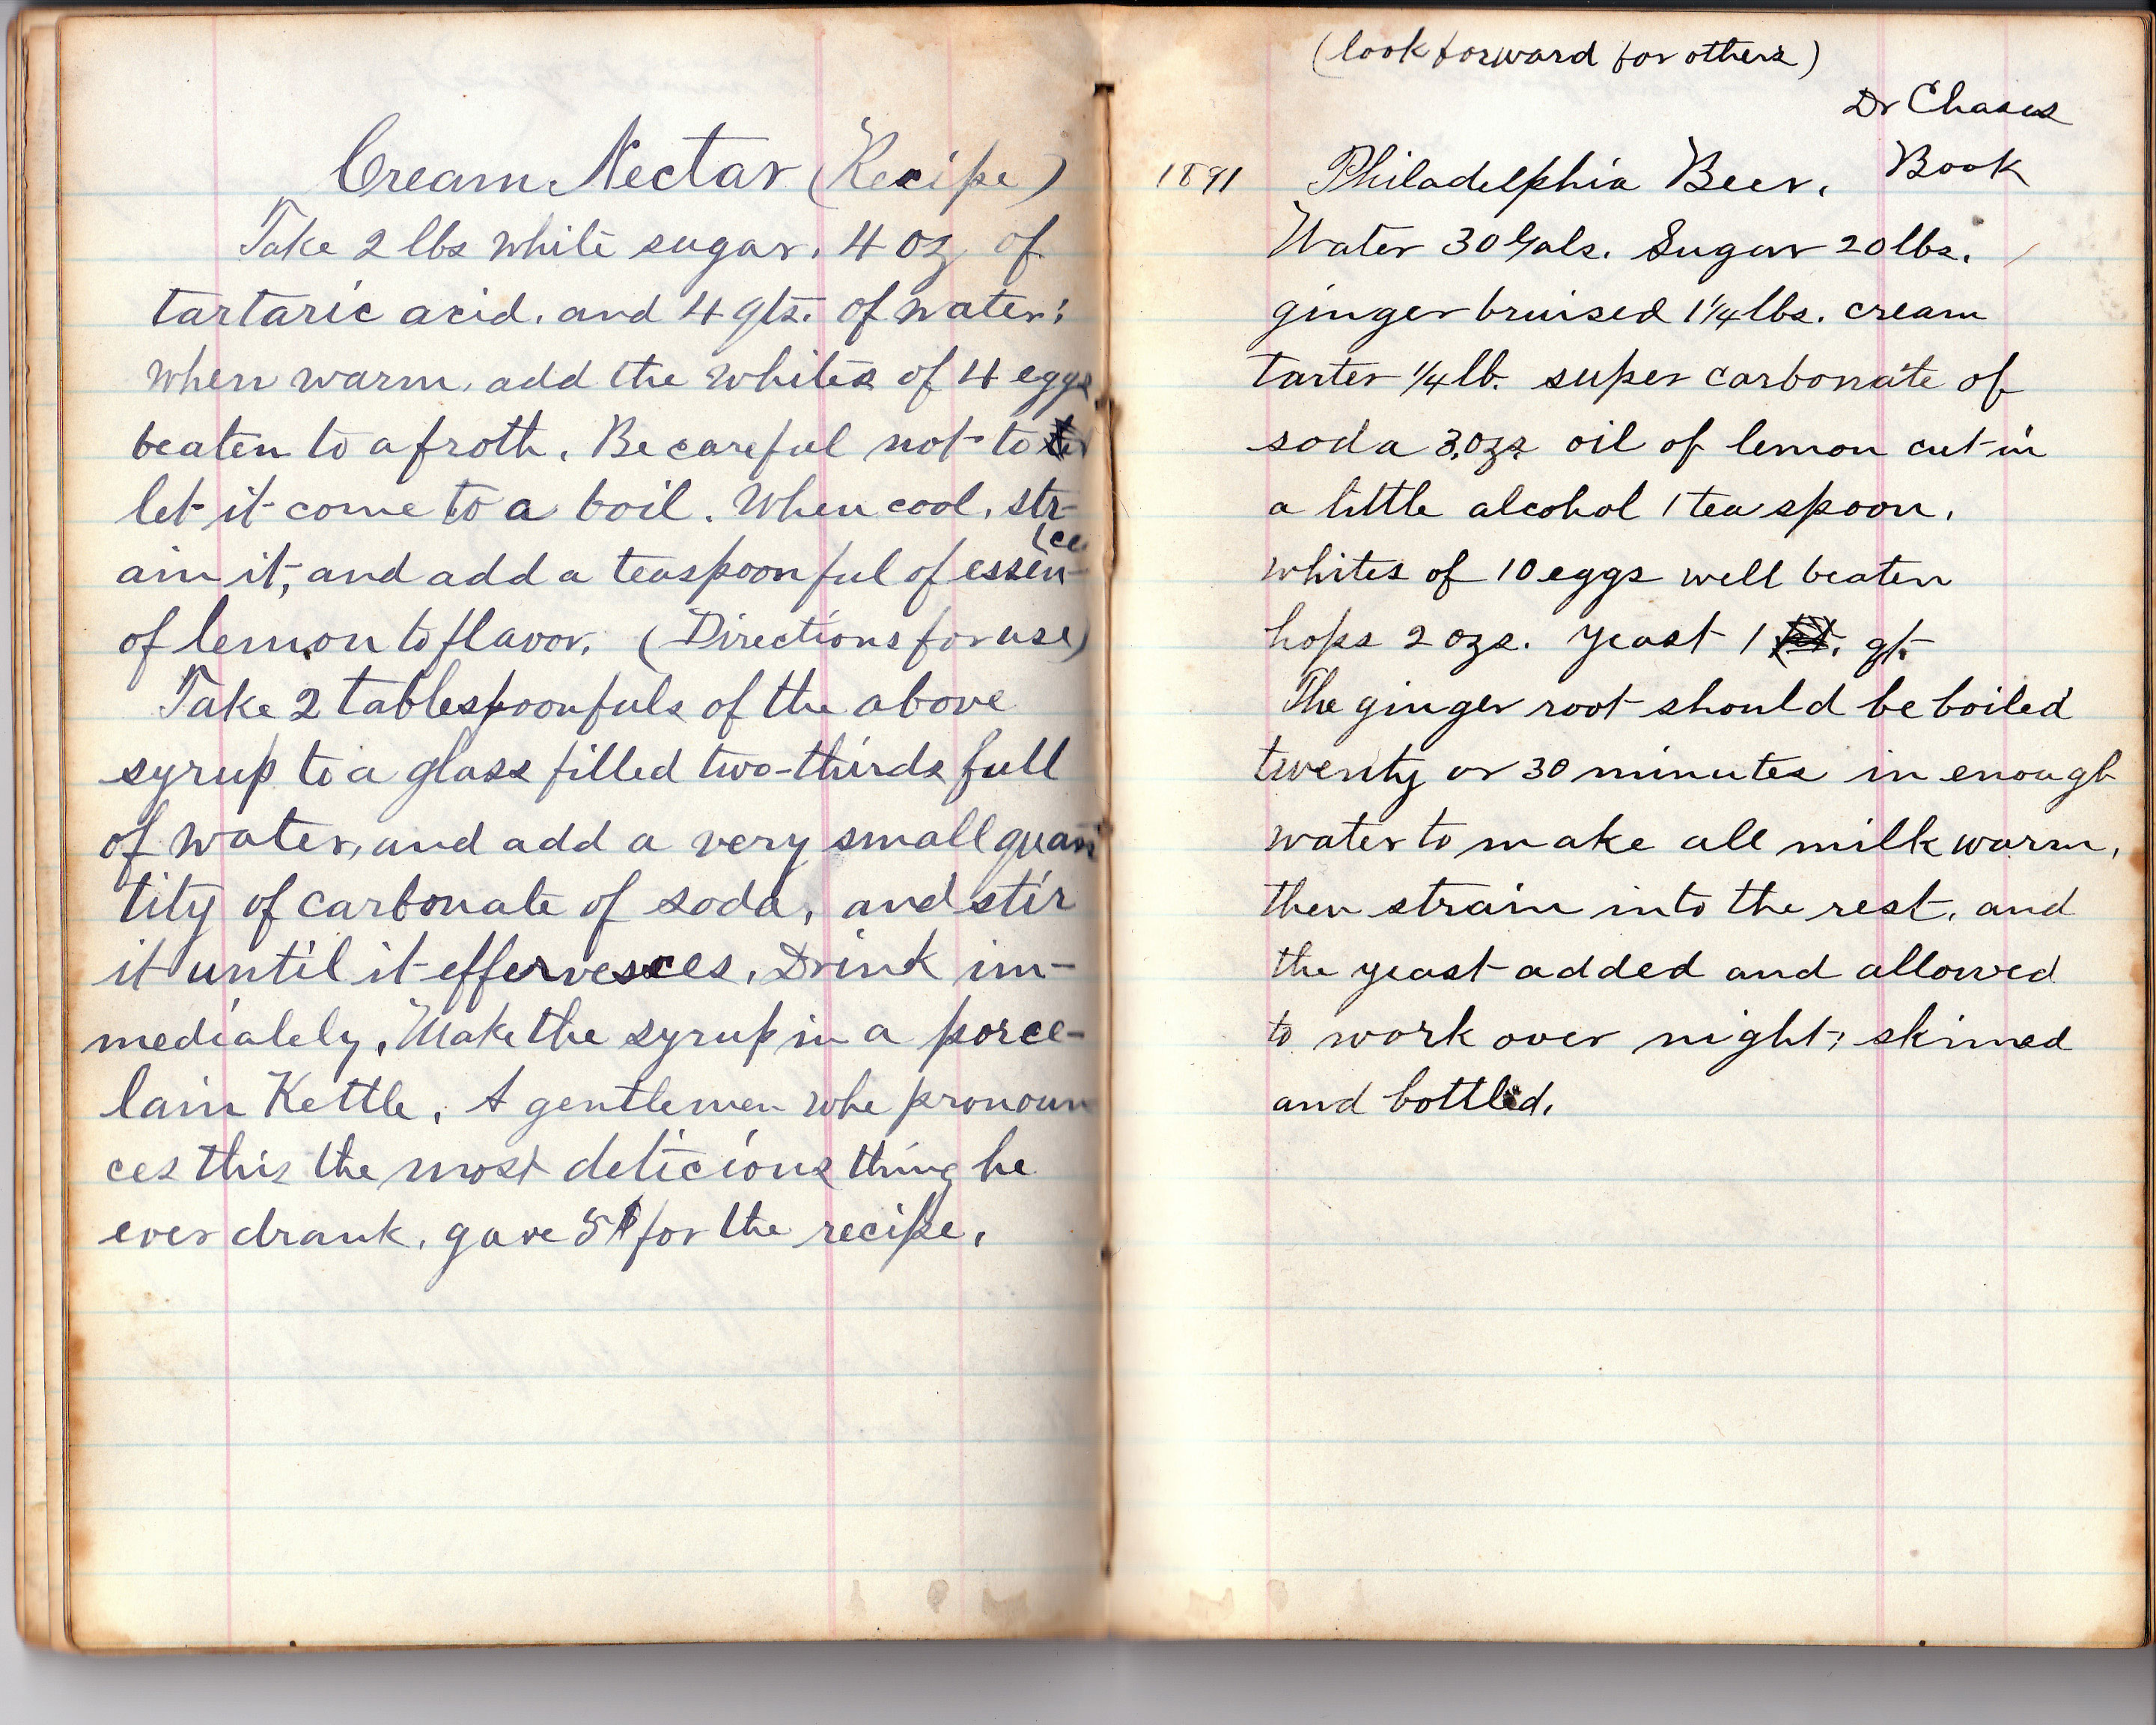 Cream Nectar (Recipe)
Take 2 lbs white sugar, 4 oz of
tartaric acid, and 4 qts. of water;
when warm, add the whites of 4 eggs
beaten to a froth. Be careful not to
let it come to a boil. When cool, str-
ain it, and add a teaspoonful of essen-
(ce
of lemon to flavor. (Directions for use)
Take 2 tablespoonfuls of the above
syrup to a glass filled two-thirds full
of water, and add a very small quan
tity of carbonate of soda, and stir
it until it effervesces. Drink im-
mediately. Make the syrup in a porce-
lain Kettle. A gentlemen who pronoun
ces this the most delicious thing he
ever drank, gave 5$ for the recipe.
(look forward for others)
Dr Chases
Book
1891 Philadelphia Beer.
Water 30 Gals. Sugar 20 lbs.
ginger bruised 1 1/4 lbs. cream
tarter 1/4 lb. super carbonate of
soda 3.ozs. oil of lemon cut in
a little alcohol 1 tea spoon.
whites of 10 eggs well beaten
hops 2 ozs. yeast 1 qt.
The ginger root should be boiled
twenty or 30 minutes in enough
water to make all milk warm,
then strain into the rest, and
the yeast added and allowed
to work over night; skimed
and bottled.